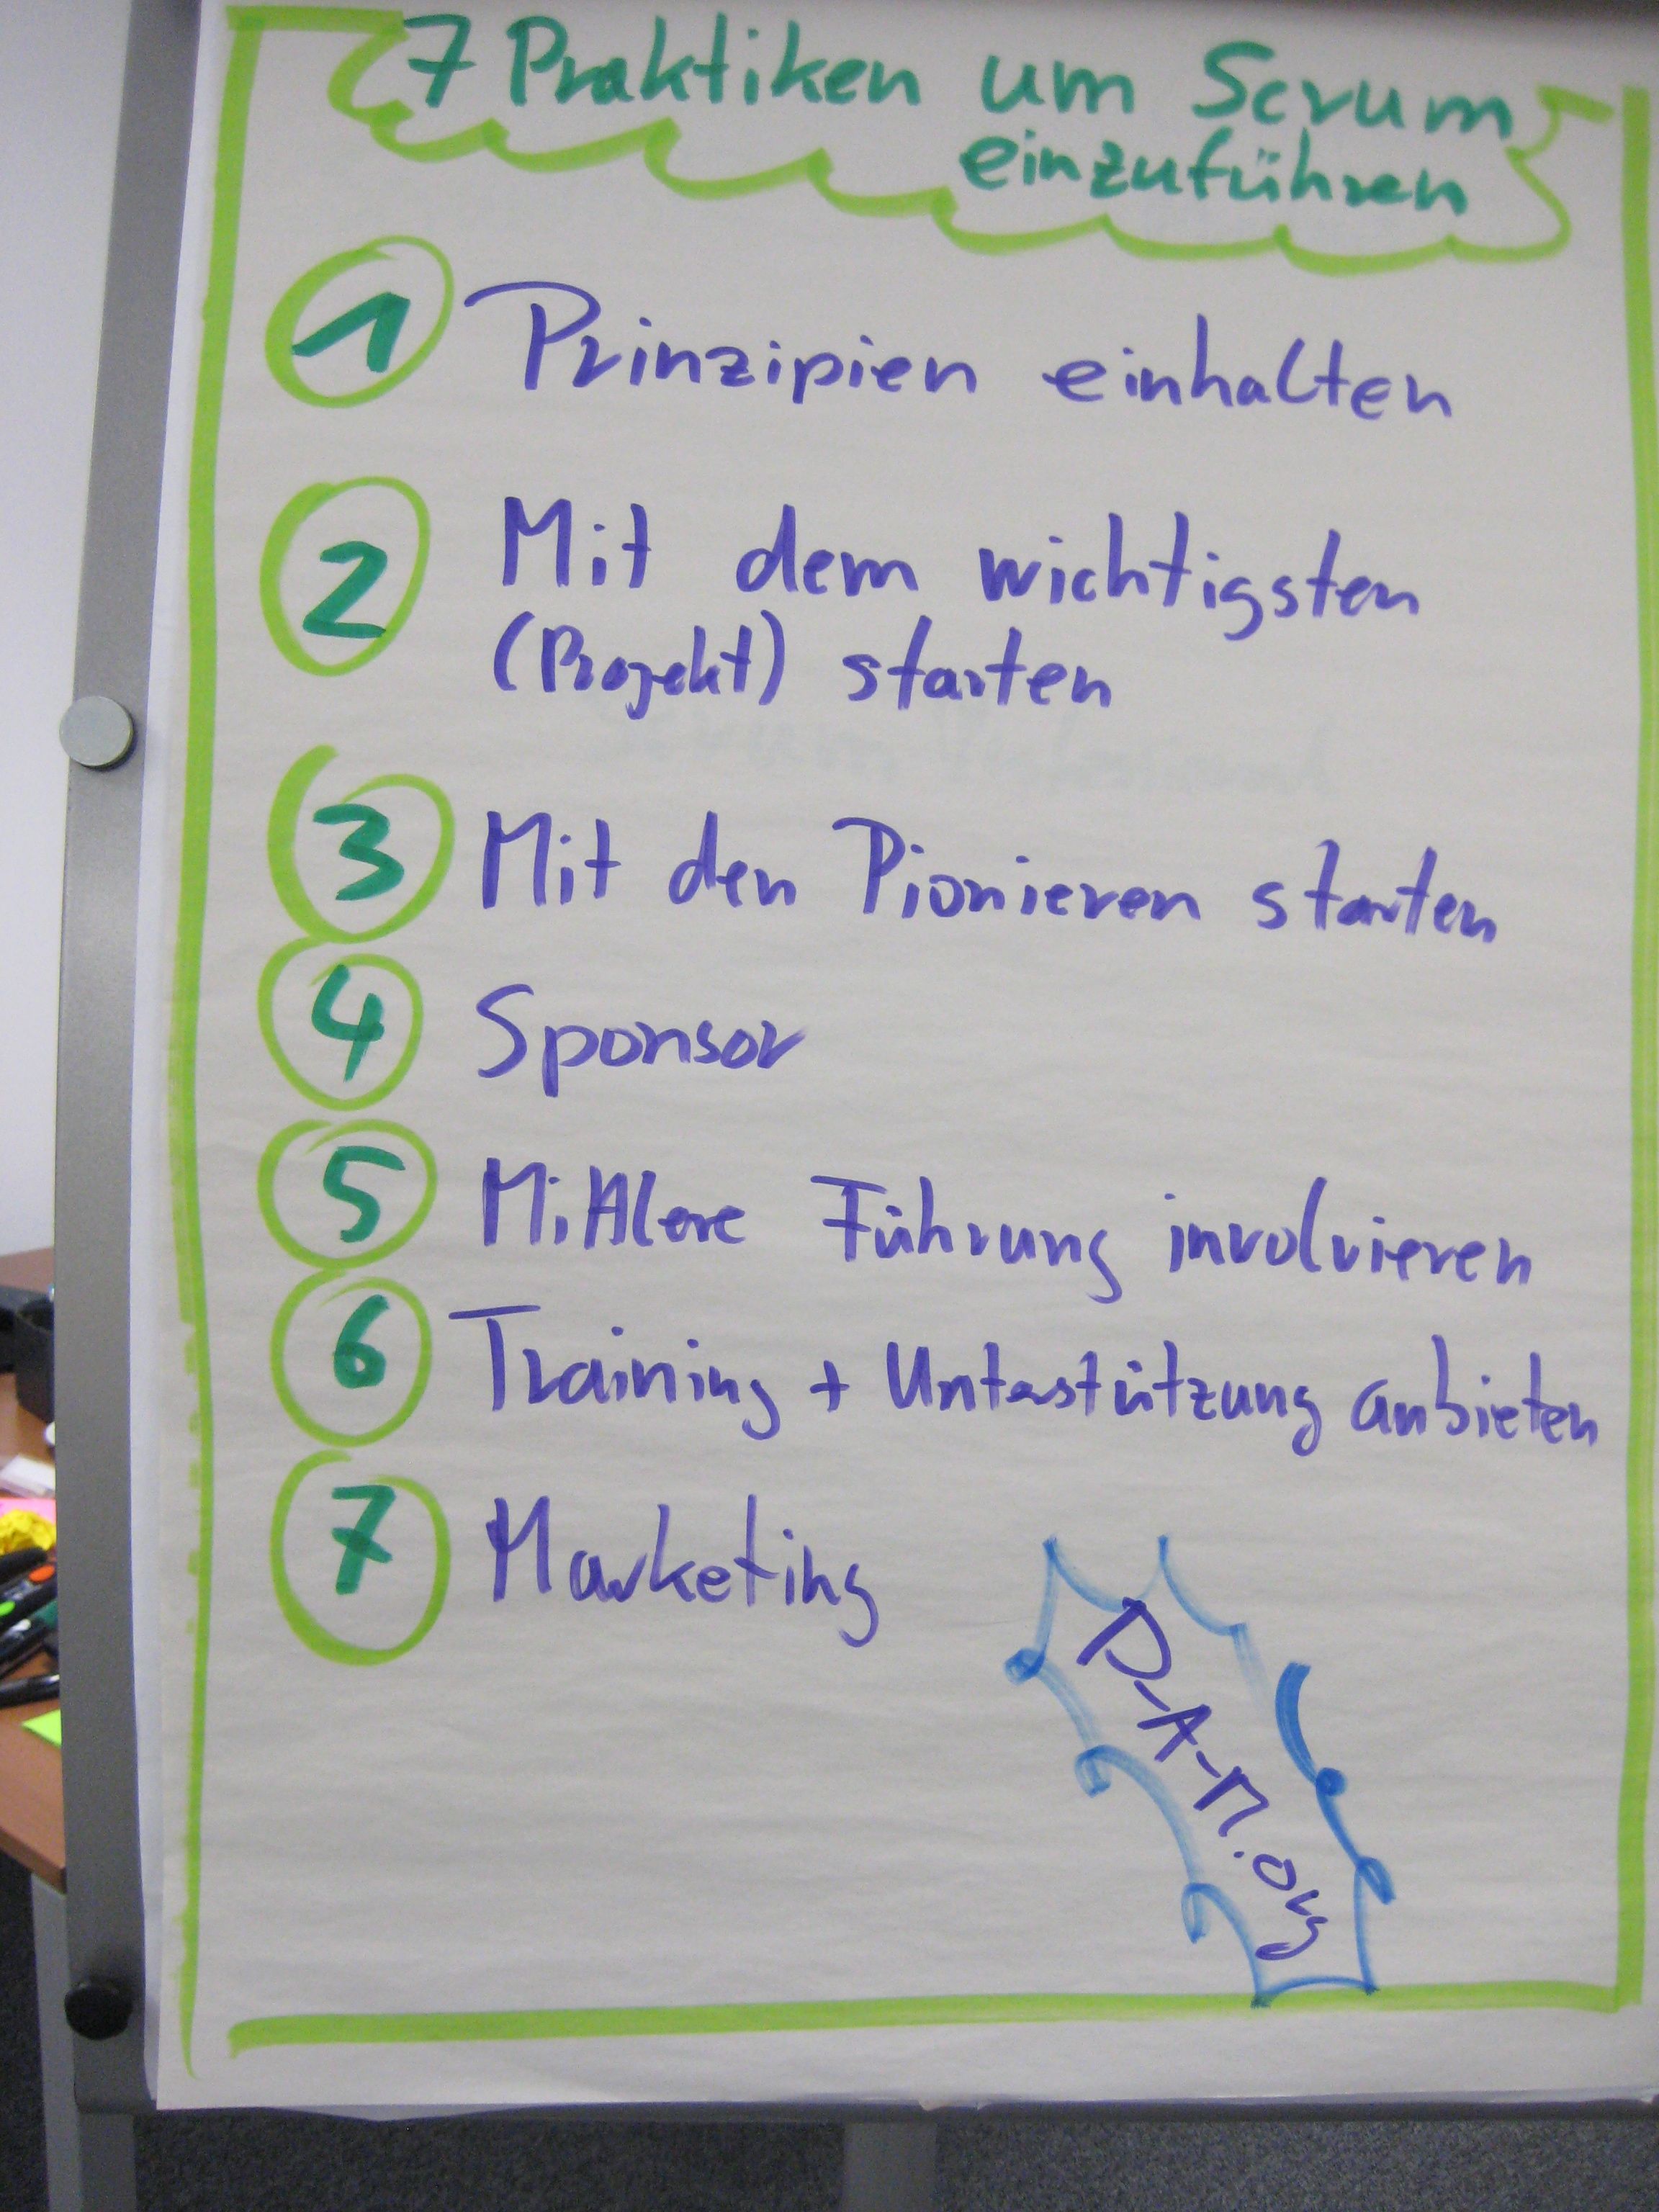 7 Praktiken um Scrum
einzuführen
1 Prinzipien einhalten
2 Mit dem wichtigsten
(Projekt) starten
3 Mit den Pionieren starten
4 Sponsor
5 Mittlere Führung involvieren
6 Training + Unterstützung anbieten
7 Marketing
P-A-M.org